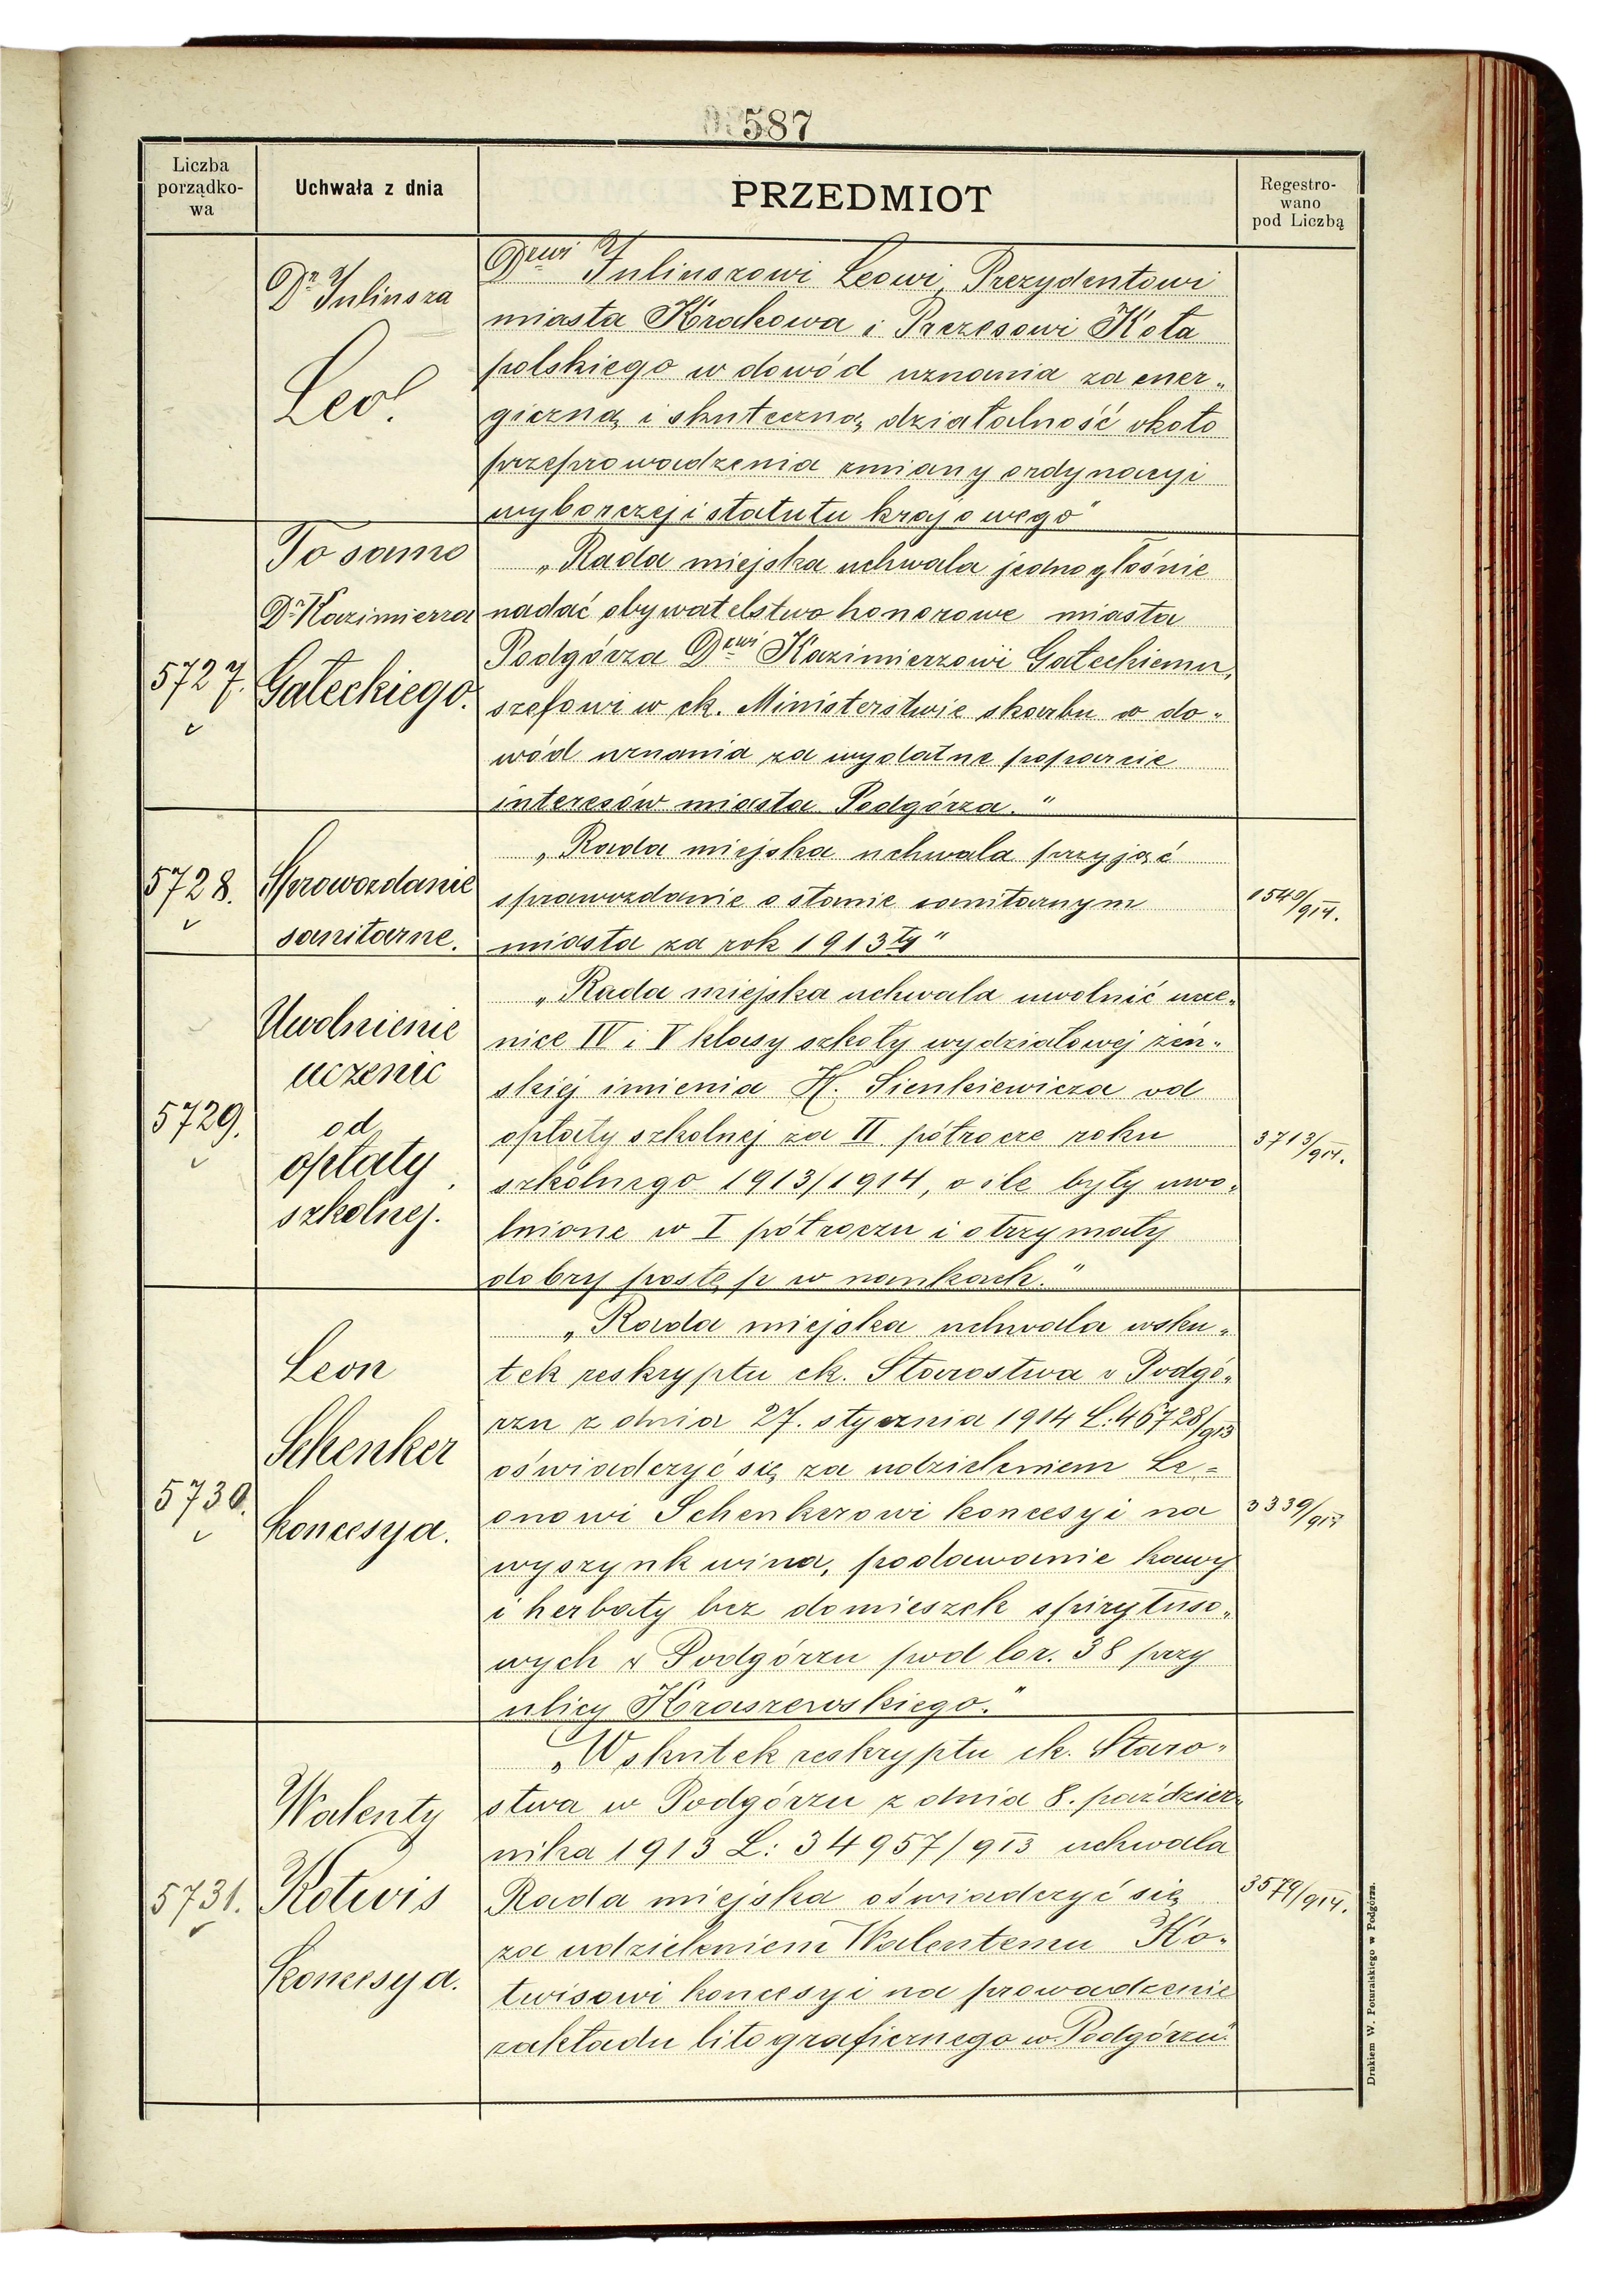 587
Liczba
porządko-
wa
Uchwała z dnia
PRZEDMIOT
Regestro-
wano
pod Liczbą
Dr. Juliusza
Leo.
Drowi Juliuszowi Leowi, Prezydentowi
miasta Krakowa i Prezesowi Koła
polskiego w dowód uznania za ener„
giczną i skuteczną działalność około
przeprowadzenia zmiany ordynacyi
wyborczej i statutu krajowego"
5727.
To samo
Dr Kazimierza
Gałeckiego.
„Rada miejska uchwala jednogłośnie
nadać obywatelstwo honorowe miasta
Podgórza Drowi Kazimierzowi Gałeckiemu,
szefowi w ck. Ministerstwie skarbu w do„
wód uznania za wydatne poparcie
interesów miasta Podgórza."
5728.
Sprawozdanie
sanitarne.
„Rada miejska uchwala przyjąć
sprawozdanie o stanie sanitarnym
miasta za rok 1913ty"
1540/914.
5729.
Uwolnienie
uczenic
od
opłaty
szkolnej.
„Rada miejska uchwala uwolnić ucze„
nice IV i V klasy szkoły wydziałowej żeń„
skiej imienia H. Sienkiewicza od
opłaty szkolnej za II półrocze roku
szkolnego 1913/1914, o ile były uwo„
lnione w I półroczu i otrzymały
dobry postęp w naukach."
3713/914.
5730.
Leon
Schenker
koncesya.
„Rada miejska uchwala wsku„
tek reskryptu ck. Starostwa w Podgó„
rzu z dnia 27. stycznia 1914 L: 46728/913
oświadczyć się za udzieleniem Le-
onowi Schenkerowi koncesyi na
wyszynk wina, podawanie kawy
i herbaty bez domieszek spirytuso„
wych w Podgórzu pod lor. 38 przy
ulicy Kraszewskiego."
3339/914
5731.
Walenty
Kotwis
koncesya.
„Wskutek reskryptu ck. Staro„
stwa w Podgórzu z dnia 8. paździer„
nika 1913 L: 34957/913 uchwala
Rada miejska oświadczyć się
za udzieleniem Walentemu Ko„
twisowi koncesyi na prowadzenie
zakładu litograficznego w Podgórzu."
3579/914.
Drukiem W. Poturalskiego w Podgórzu.